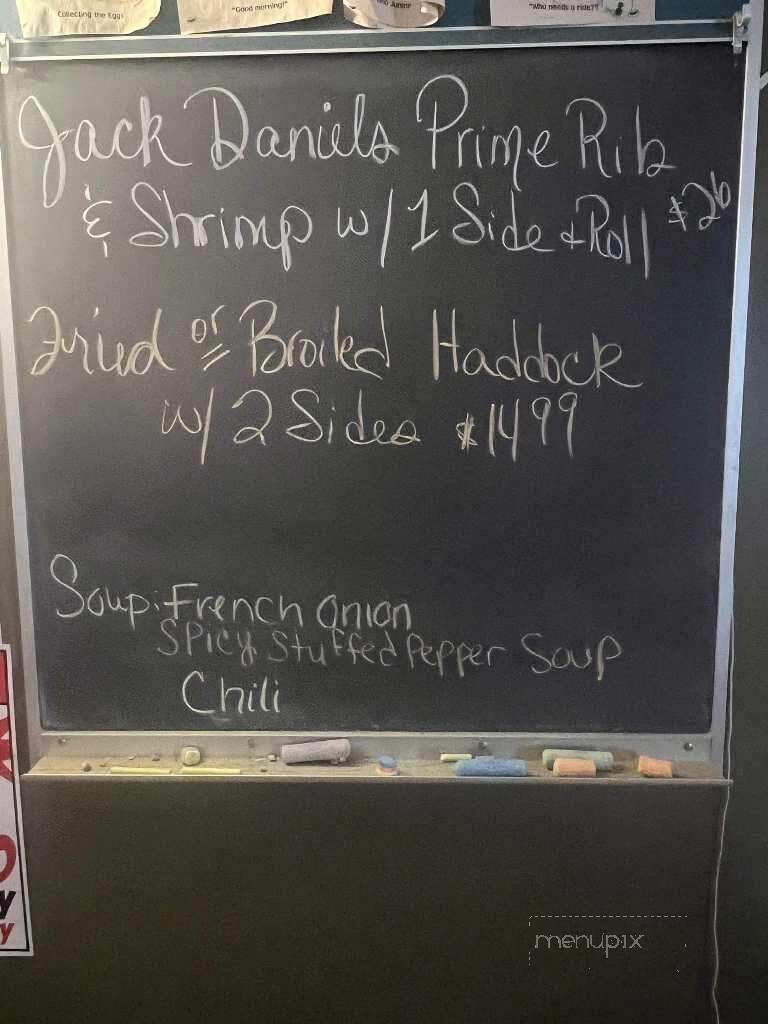 Collecting the Eggs
"Good morning!"
Junior
"Who needs a ride?"
Jack Daniels Prime Rib
& Shrimp w/ 1 Side + Roll $26
Fried or Broiled Haddock
w/ 2 Sides $14 99
Soup: French Onion
Spicy Stuffed Pepper Soup
Chili
menupix